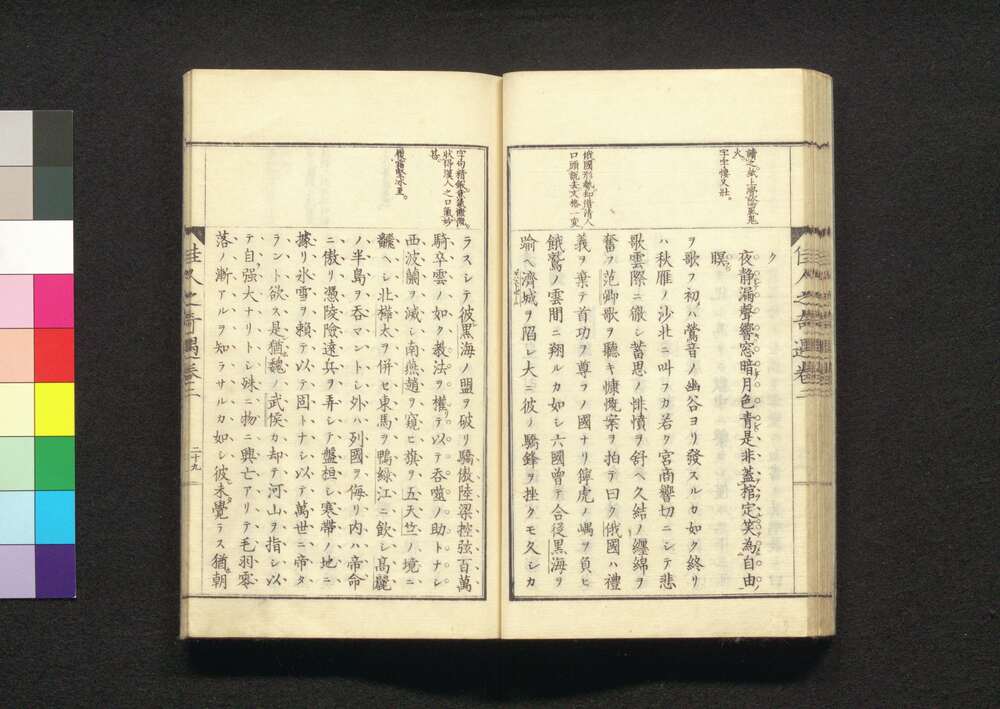 字字悽又壯。
俄國形勢却借清人
口頭説去文格一変
ク
夜静漏聲響窓暗月色青是非蓋棺定笑為自由ノ
瞑
ヲ歌フ初ハ鶯音ノ幽谷ヨリ發スルカ如ク終リ
ハ秋雁ノ沙北ニ叫フカ若ク宮商響切ニシテ悲
歌雲際ニ徹シ蓄思ノ悱憤ヲ舒ヘ久結ノ纏綿ヲ
奮フ范卿歌ヲ聽キ慷慨案ヲ拍テ曰ク俄國ハ禮
義ヲ棄テ首功ヲ尊フノ國ナリ獰虎ノ嵎ヲ負ヒ
餓鷲ノ雲間ニ翔ルカ如シ六國曾テ合從黒海ヲ
踰ヘ濟城ヲ陷レ大ニ彼ノ驕鋒ヲ挫クモ久シカ
字句精鍛
状得漢人之口氣妙
甚。
履霜堅冰至。
ラスシテ彼黒海ノ盟ヲ破リ驕傲陸梁控弦百萬
騎卒雲ノ如ク教法ヲ權リ以テ呑噬ノ助トナシ
西波蘭ヲ滅シ南燕趙ヲ窺ヒ旗ヲ五天竺ノ境ニ
飜ヘシ北樺太ヲ併セ東馬ヲ鴨緑江ニ飲シ髙麗
ノ半島ヲ呑マントシ外ハ列國ヲ侮リ内ハ帝命
ニ傲リ憑陵險遠兵ヲ弄シテ盤桓シ寒帶ノ地ニ
據リ氷雪ヲ頼テ以テ固トナシ以テ萬世ニ帝タ
ラント欲ス是猶魏ノ武侯カ却テ河山ヲ指シ以
テ自強大ナリトシ殊ニ物ニ興亡アリテ毛羽零
落ノ漸アルヲ知ラサルカ如シ彼未覺ラス猶朝
佳人之奇遇 卷二
二十九